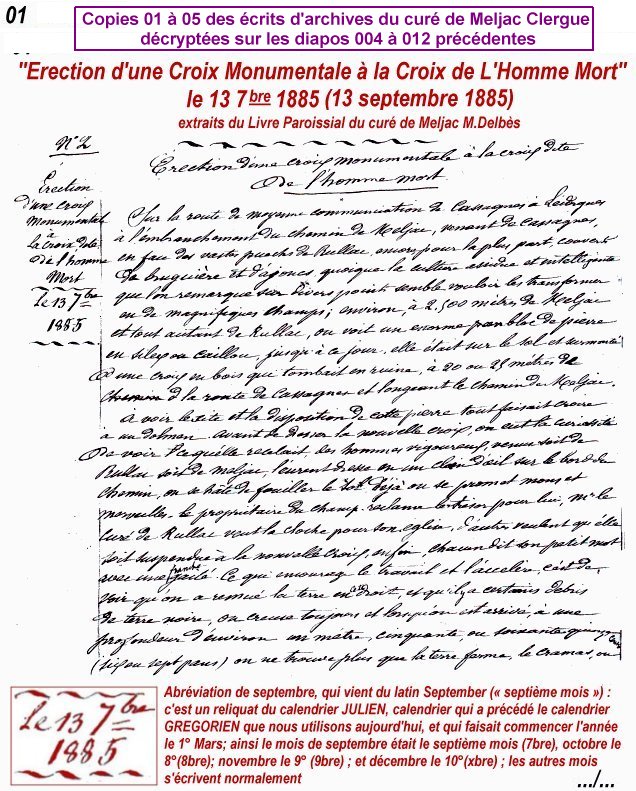 01
Copies 01 à 05 des écrits d'archives du curé de Meljac Clergue
décryptées sur les diapos 004 à 012 précédentes
"Erection d'une Croix Monumentale à la Croix de L'Homme Mort"
le 13 7bre 1885 (13 septembre 1885)
extraits du Livre Paroissial du curé de Meljac M.Delbès
N° 2
Erection
d'une croix
Monumentale
à
la croix dite
de l'homme
Mort
Le 13 7bre
1885
Erection d'une croix monumentale à la croix dite
de l'homme mort
Sur la route de moyenne communication de Cassagnes à Lédergues
à l'embranchement du chemin de Meljac, venant de Cassagnes,
en face des vastes puechs de Rullac, encore pour la plus part, couverts
de bruguière et d'ajoncs, quoique la culture assidue et intelligente
que l'on remarque sur divers points semble vouloir les transformer
en de magnifiques champs; environ, à 2,500 mètres de Meljac
et tout autant de Rullac, on voit un enorme bloc de pierre
en silex ou caillou, jusqu'à ce jour, elle était sur le sol et surmonté
d'une croix en bois qui tombait en ruine, à 20 ou 25 mètres de
chemin de la route de Cassagnes et longeant le chemin de Meljac.
À voir le site et la disposition de cette pierre tout faisait croire
à un dolmen avant de dresser la nouvelle croix, on eut la curiosité
de voir ce qu'elle recelait, des hommes vigoureux, venus soit de
Rullac soit de Meljac, l'eurent dressé en un clin d'œil sur le bord du
chemin, on se hâte de fouiller le sol déjà on se promet mons et
merveilles. le propriétaire du champ reclame le trésor pour lui, Mr le
curé de Rullac veut la cloche pour son église, d'autres veulent qu'elle
soit suspendue à la nouvelle croix enfin, chacun dit son petit mot
avec une franche gaité. Ce qui encourage le travail et l'accélère, c'est de
voir qu'on a remué la terre en cet endroit, et qu'il y a certains debris
de terre noire, on creuse toujours et lorsqu'on est arrivé, à une
profondeur d'environ un mètre, cinquante ou soixante
(six ou sept pans) on ne trouve plus que la terre ferme, le cramas, ou
Le 13 7bre
1885
Abréviation de septembre, qui vient du latin September (« septième mois ») :
c'est un reliquat du calendrier JULIEN, calendrier qui a précédé le calendrier
GREGORIEN que nous utilisons aujourd'hui, et qui faisait commencer l'année
le 1° Mars; ainsi le mois de septembre était le septième mois (7bre), octobre le
8°(8bre); novembre le 9° (9bre) ; et décembre le 10°(xbre) ; les autres mois
s'écrivent normalement
.../...